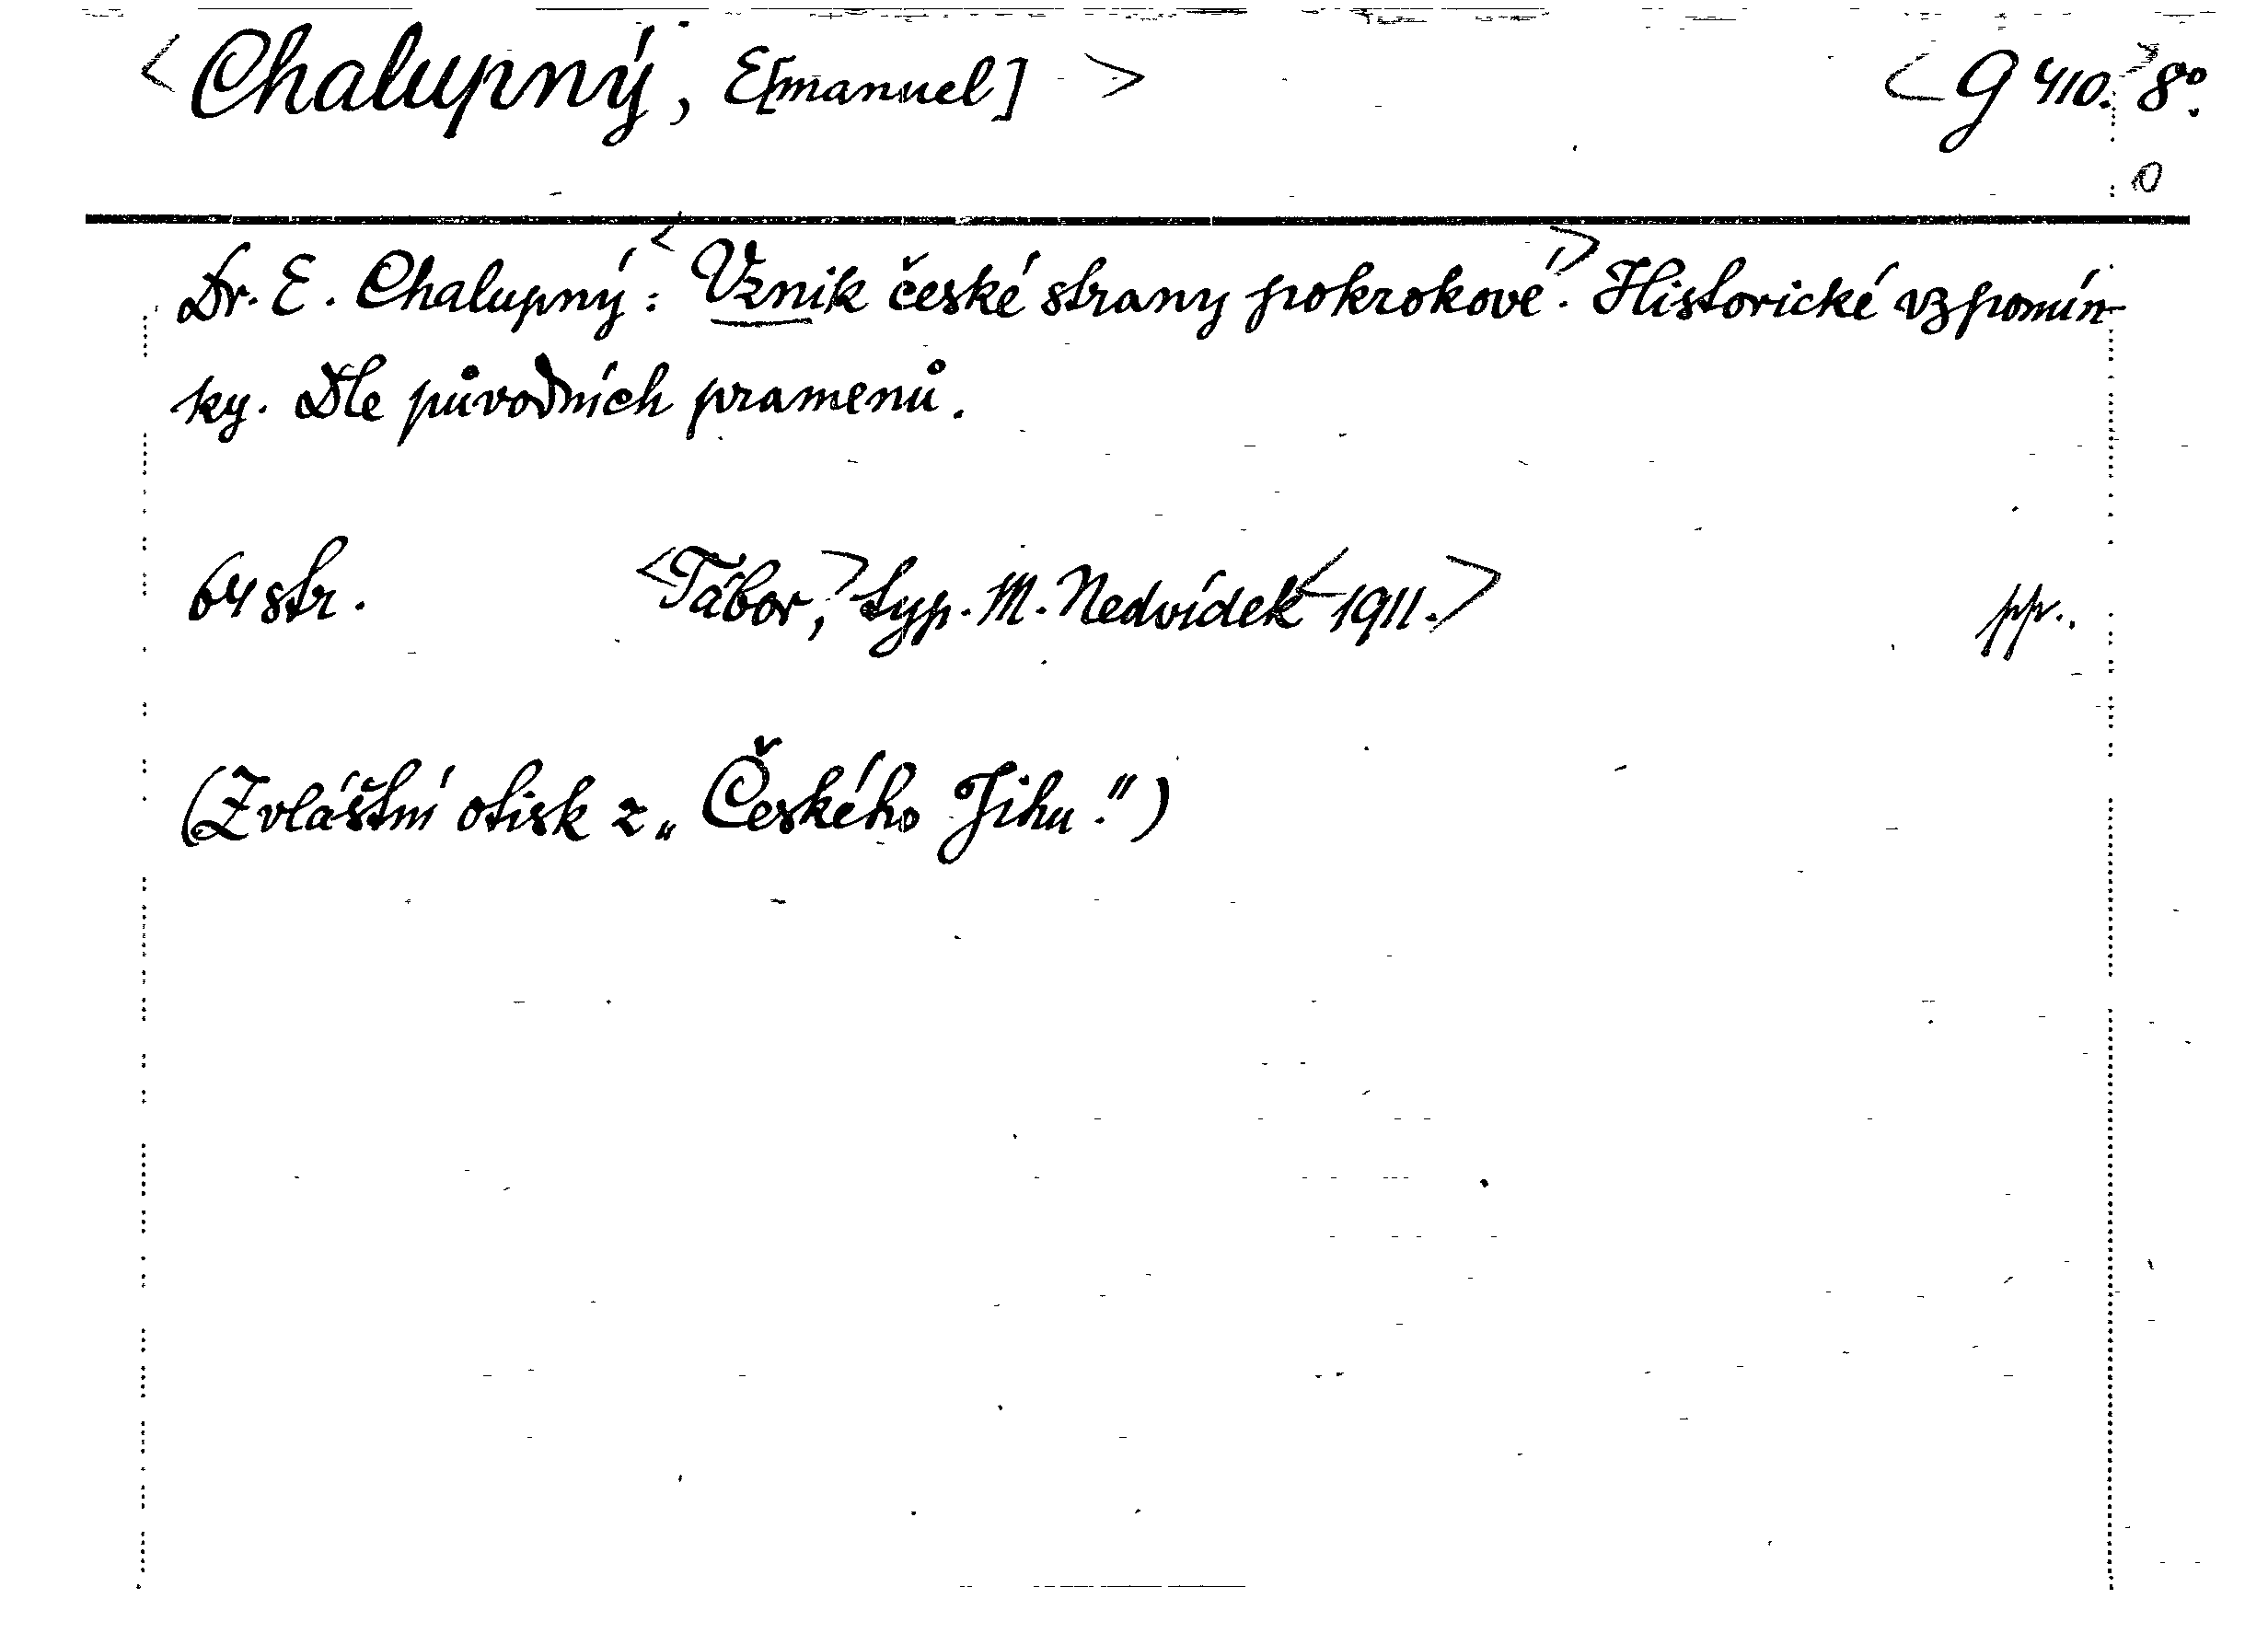 <Chalupný, E[manuel]> <G 410.> 8°.
0
Dr. E. Chalupný: <Vznik české strany pokrokové.> Historické vzpomín-
ky. Dle původních pramenů.
64 str. <Tábor,> typ. M. Nedvídek <1911.> pp..
(Zvláštní otisk z „Českého Jihu.")